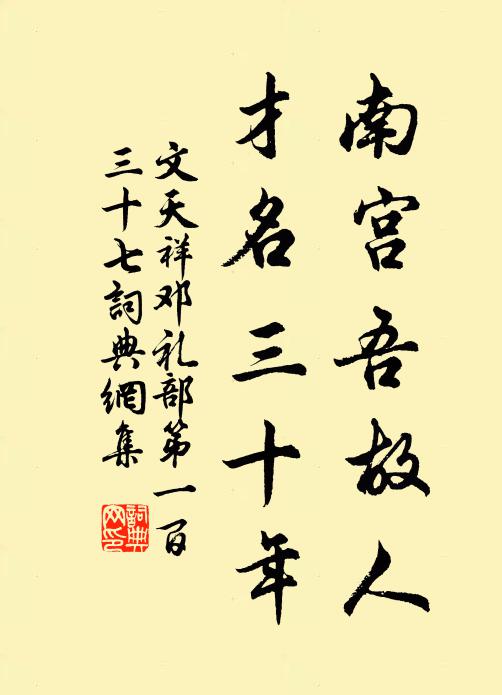 南宫吾故人
才名三十年
文天祥邓礼部第一百
三十七詞典網集
詞典网印